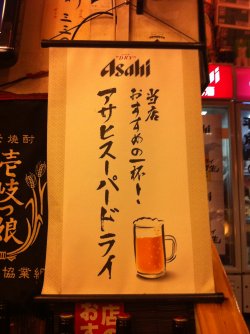 DRY
Asahi
当店
おすすめの一杯!
アサヒスーパードライ
焼酎
壱岐っ娘
協業
当店
おす